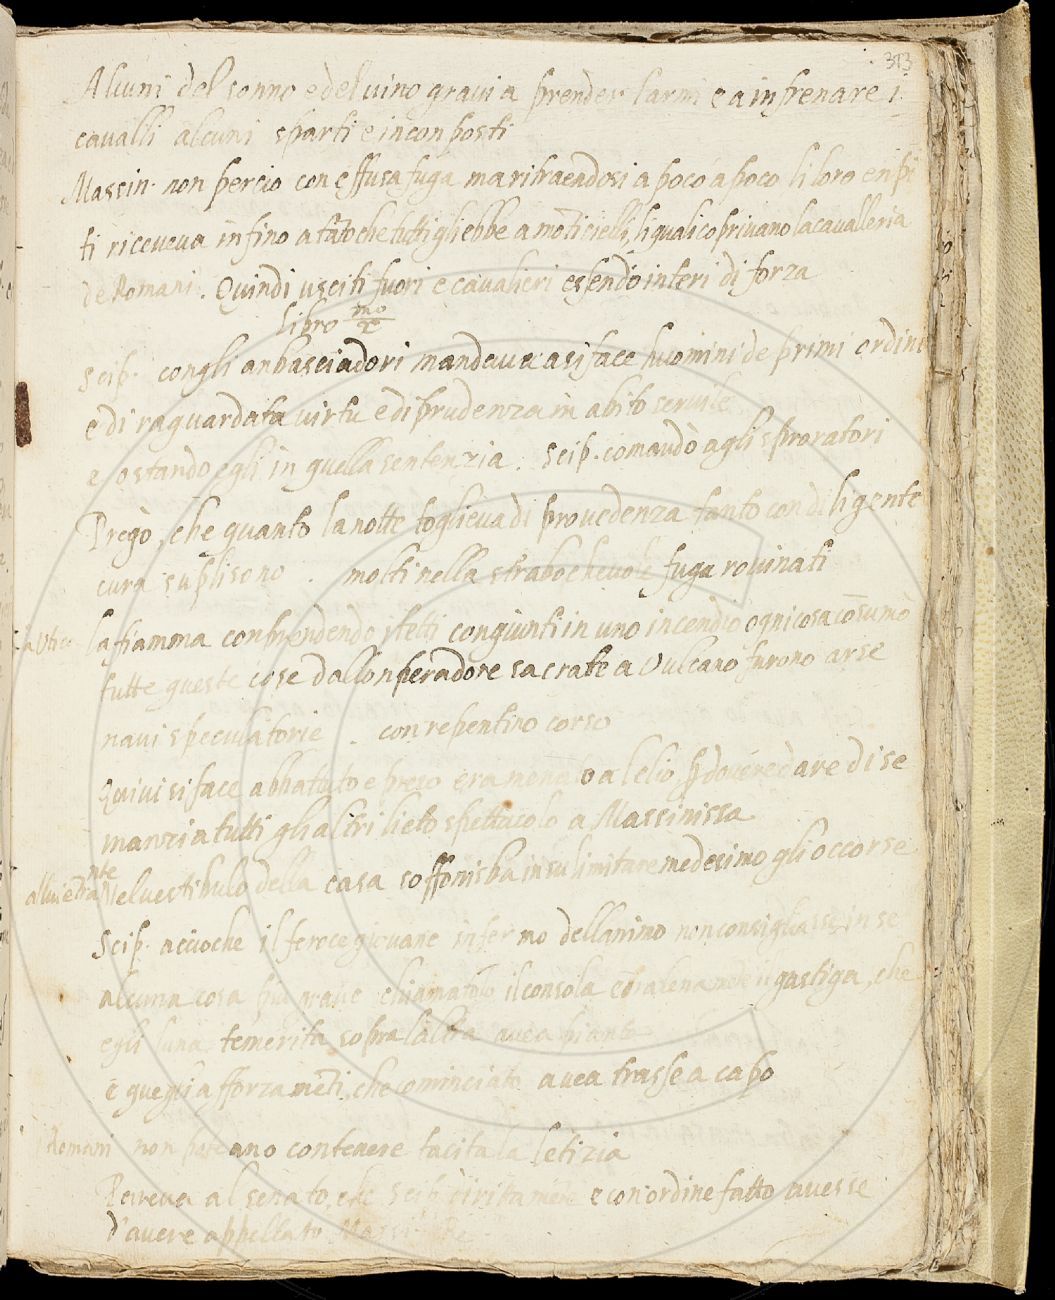 313
Alcuni del sonno e del vino gravi a prender l'armi e a infrenare i
cavalli alcuni sparti e inconposti
Massin. non percio con effusa fuga ma ritraendosi a poco a poco li loro enpi
ti riceveva infino a tãto che tutti gli ebbe a mõticielli, li quali coprivano la cavalleria
de Romani. Quindi usciti fuori e cavalieri essendo interi di forza
libro mo
x
Scip. con gli anbasciadori mandava a siface huomini de primi ordini
e di raguardata virtu e di prudenza in abito servile
e ostando egli in quella sentenzia. Scip. comandò agli sproratori
Pregò, che quanto la notte toglieva di provedenza tanto con diligente
cura suplisono. molti nella strabochevole fuga rovinati
à Utica la fiamma conprendendo i tetti congiunti in uno incendio ogni cosa cõsumò
tutte queste cose dallonperadore sacrate a Vulcano furono arse
navi speculatorie. con repentino corso
Quivi siface abbattuto e preso era menato a lelio, p dovere dare di se
manzi a tutti gli altri lieto spettacolo a Massinissa
allui ẽtrante Nel vestibulo della casa soffonisba in su limitare medesimo gli occorse
Scip. accioche il feroce giovane infermo dellanimo non consigliasse in se
alcuna cosa piu grave chiamatolo il consola e gastiga, che
egli luna temerita sopra laltra avea
e quegli afforzamẽti, che cominciato avea trasse a capo
i Romani non poteano contenere tacita la letizia
Pareva al senato, che Scip. dirittamẽte e con ordine fatto avesse
d'avere appellato Massin. Re